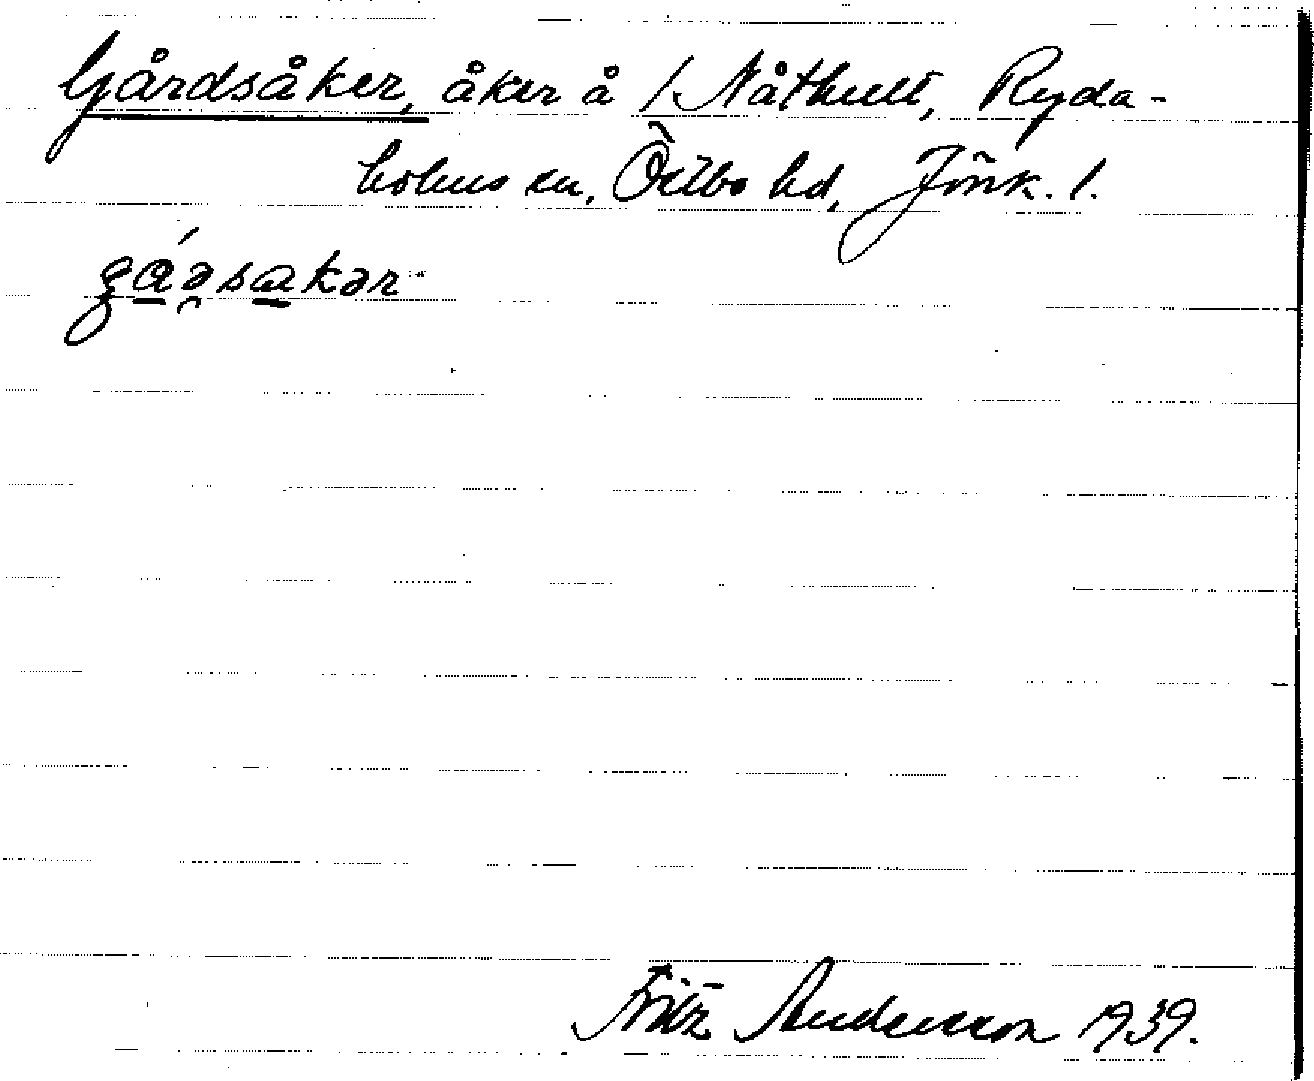 Gårdsåker, åker å / Nåthult, Ryda-
holms sn, Östbo hd, Jönk. l.
gáəsakər
Fritz Andersson 1939.